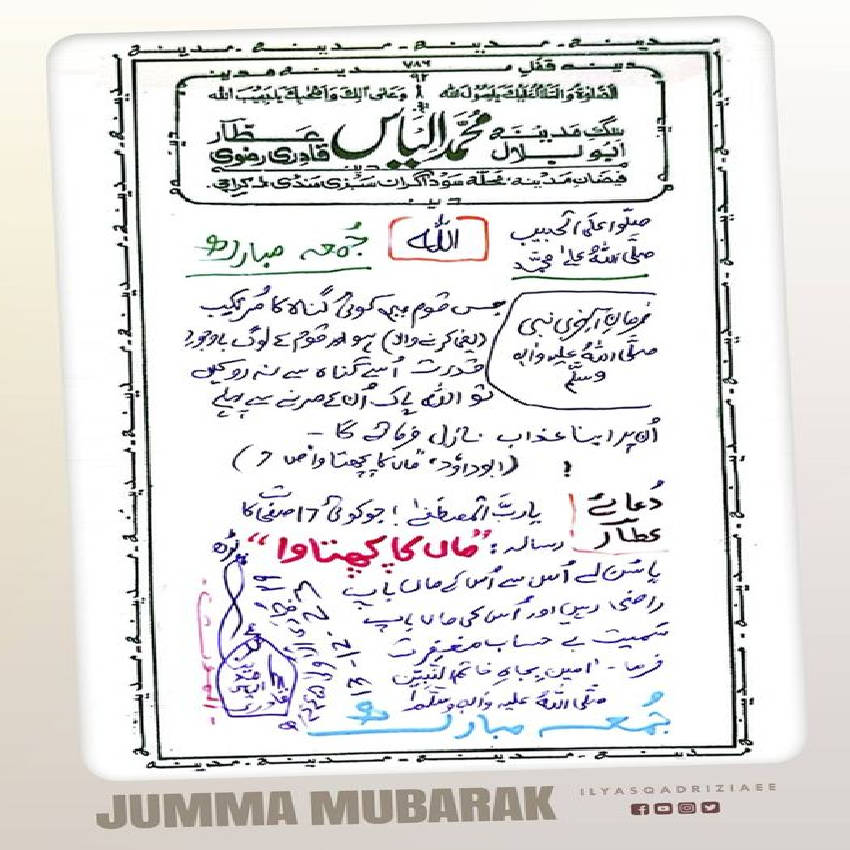 مدینہ - مدینہ - مدینہ - مدینہ - مدینہ
مدینہ قفلِ مدینہ مدینہ
۷۸۶
۹۲
الصلوٰۃ والسلام علیک یا رسول اللہ وعلیٰ اٰلک واصحٰبک یا حبیب اللہ
سگِ مدینہ محمد الیاس عطّار
ابو بلال قادری رضوی
فیضانِ مدینہ، محلّہ سوداگران سبزی منڈی کراچی
مدینہ
صلّوا علی الحبیب
صلَّی اللہُ علیٰ محمَّد
اللہ
جُمعہ مبارک
فرمانِ آخری نبی
صلَّی اللہُ علیہ واٰلہ
وسلَّم
جس قوم میں کوئی گناہ کا مُرتکب
(یعنی کرنے والا) ہو اور قوم کے لوگ باوجودِ
قدرت اُسے گناہ سے نہ روکیں
تو اللہ پاک اُن کے مرنے سے پہلے
اُن پر اپنا عذاب نازل فرمائے گا -
(ابوداوٗد، ماں کا پچھتاوا ص 7)
دُعائے
عطّار
یاربَّ المصطفےٰ! جو کوئی 17 صفحات کا
رسالہ: "ماں کا پچھتاوا" پڑھ
یا سُن لے اُس سے اُس کے ماں باپ
راضی رہیں اور اُس کی ماں باپ
سمیت بے حساب مغفرت
فرما - اٰمین بجاہِ خاتم النَّبیّٖن
صلَّی اللہُ علیہ واٰلہ وسلَّم
جُمعہ مبارک
JUMMA MUBARAK
ILYASQADRIZIAEE